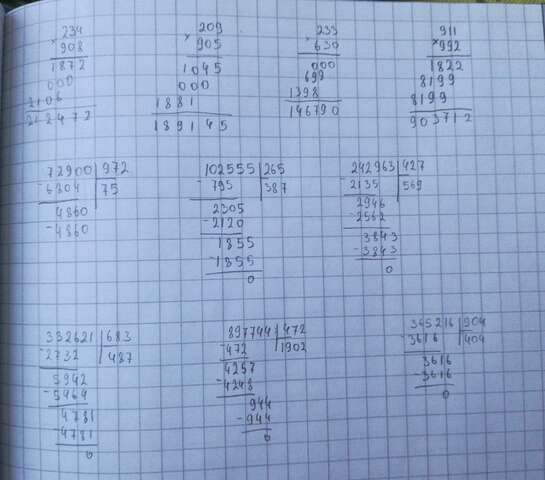 234 209 233 911
× 908 × 905 × 630 × 992
1872 1045 000 1822
000 000 699 8199
2106 1881 1398 8199
212472 189145 146790 903712
72900 | 972 102555 | 265 242963 | 427
- 6804 | 75 - 795 | 387 - 2135 | 569
4860 2305 2946
- 4860 - 2120 - 2562
1855 3843
- 1855 - 3843
0 0
332621 | 683 897744 | 472 365216 | 904
- 2732 | 487 - 472 | 1902 - 3616 | 404
5942 4257 3616
- 5464 - 4248 - 3616
4781 944 0
- 4781 - 944
0 0